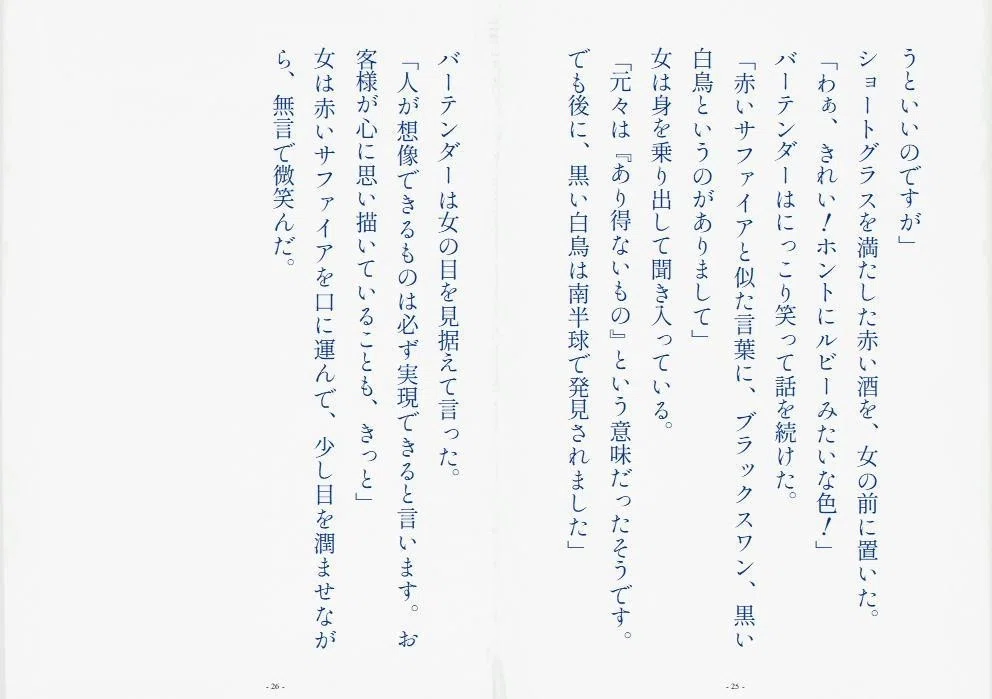 うといいのですが」
ショートグラスを満たした赤い酒を、女の前に置いた。
「わぁ、きれい！ホントにルビーみたいな色！」
バーテンダーはにっこり笑って話を続けた。
「赤いサファイアと似た言葉に、ブラックスワン、黒い
白鳥というのがありまして」
女は身を乗り出して聞き入っている。
「元々は『あり得ないもの』という意味だったそうです。
でも後に、黒い白鳥は南半球で発見されました」
- 25 -
バーテンダーは女の目を見据えて言った。
「人が想像できるものは必ず実現できると言います。お
客様が心に思い描いていることも、きっと」
女は赤いサファイアを口に運んで、少し目を潤ませなが
ら、無言で微笑んだ。
- 26 -